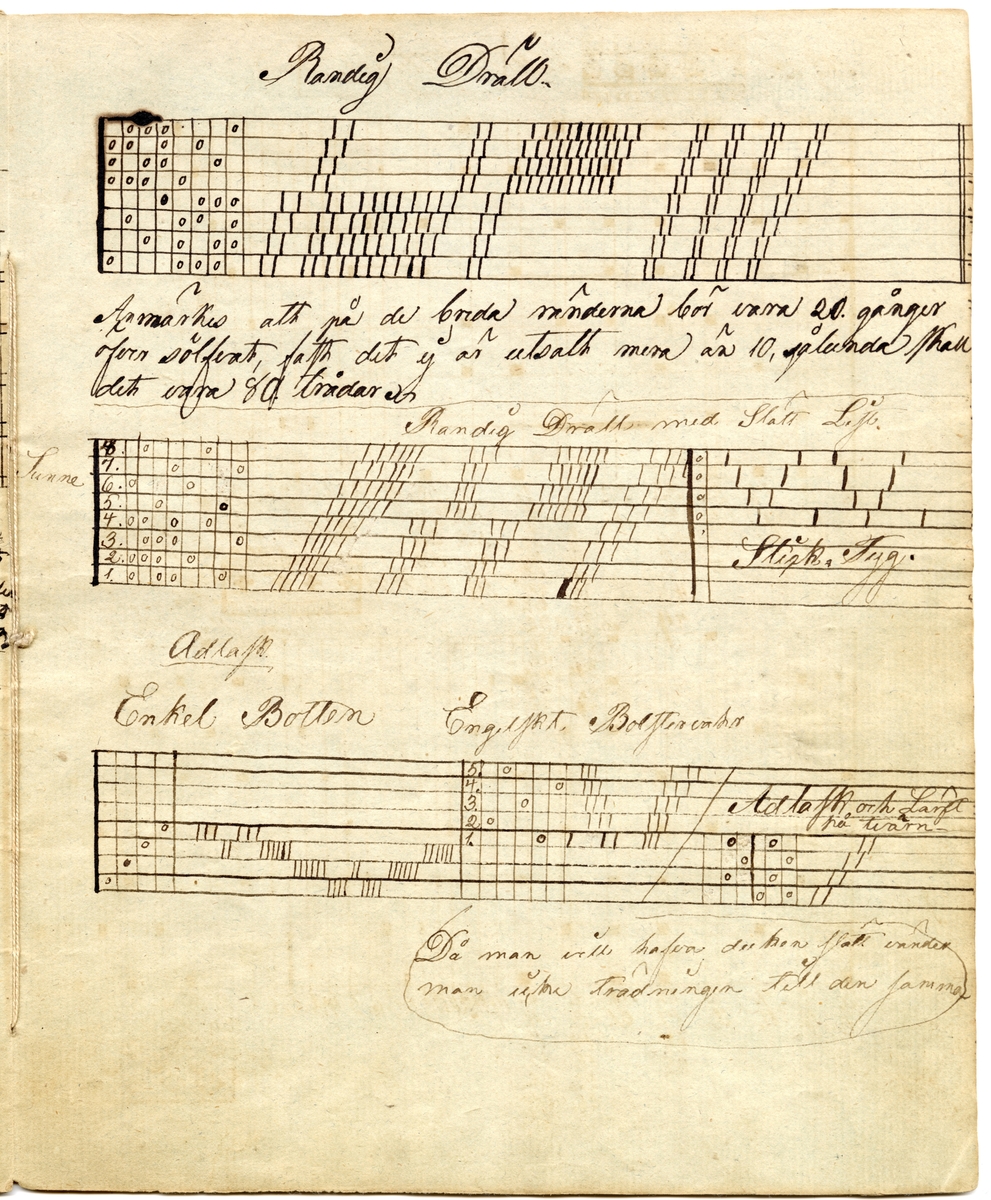 Randig Dräll.
Anmärkes att på de breda ränderna bör vara 20. gånger
öfver sölfvat, fast det ej är utsatt mera än 10, sålunda skall
det vara 80 trådar
Randig Dräll med Slätt List.
Sunne
8.
7.
6.
5.
4.
3.
2.
1.
Tyg.
Adlask
Enkel Botten
Engelskt Bolstervahr
5.
4.
3.
2.
1.
Adlask och Lärft
på tvärn
Då man vill hafva den slätt vänder
man icke trädningen till den samma